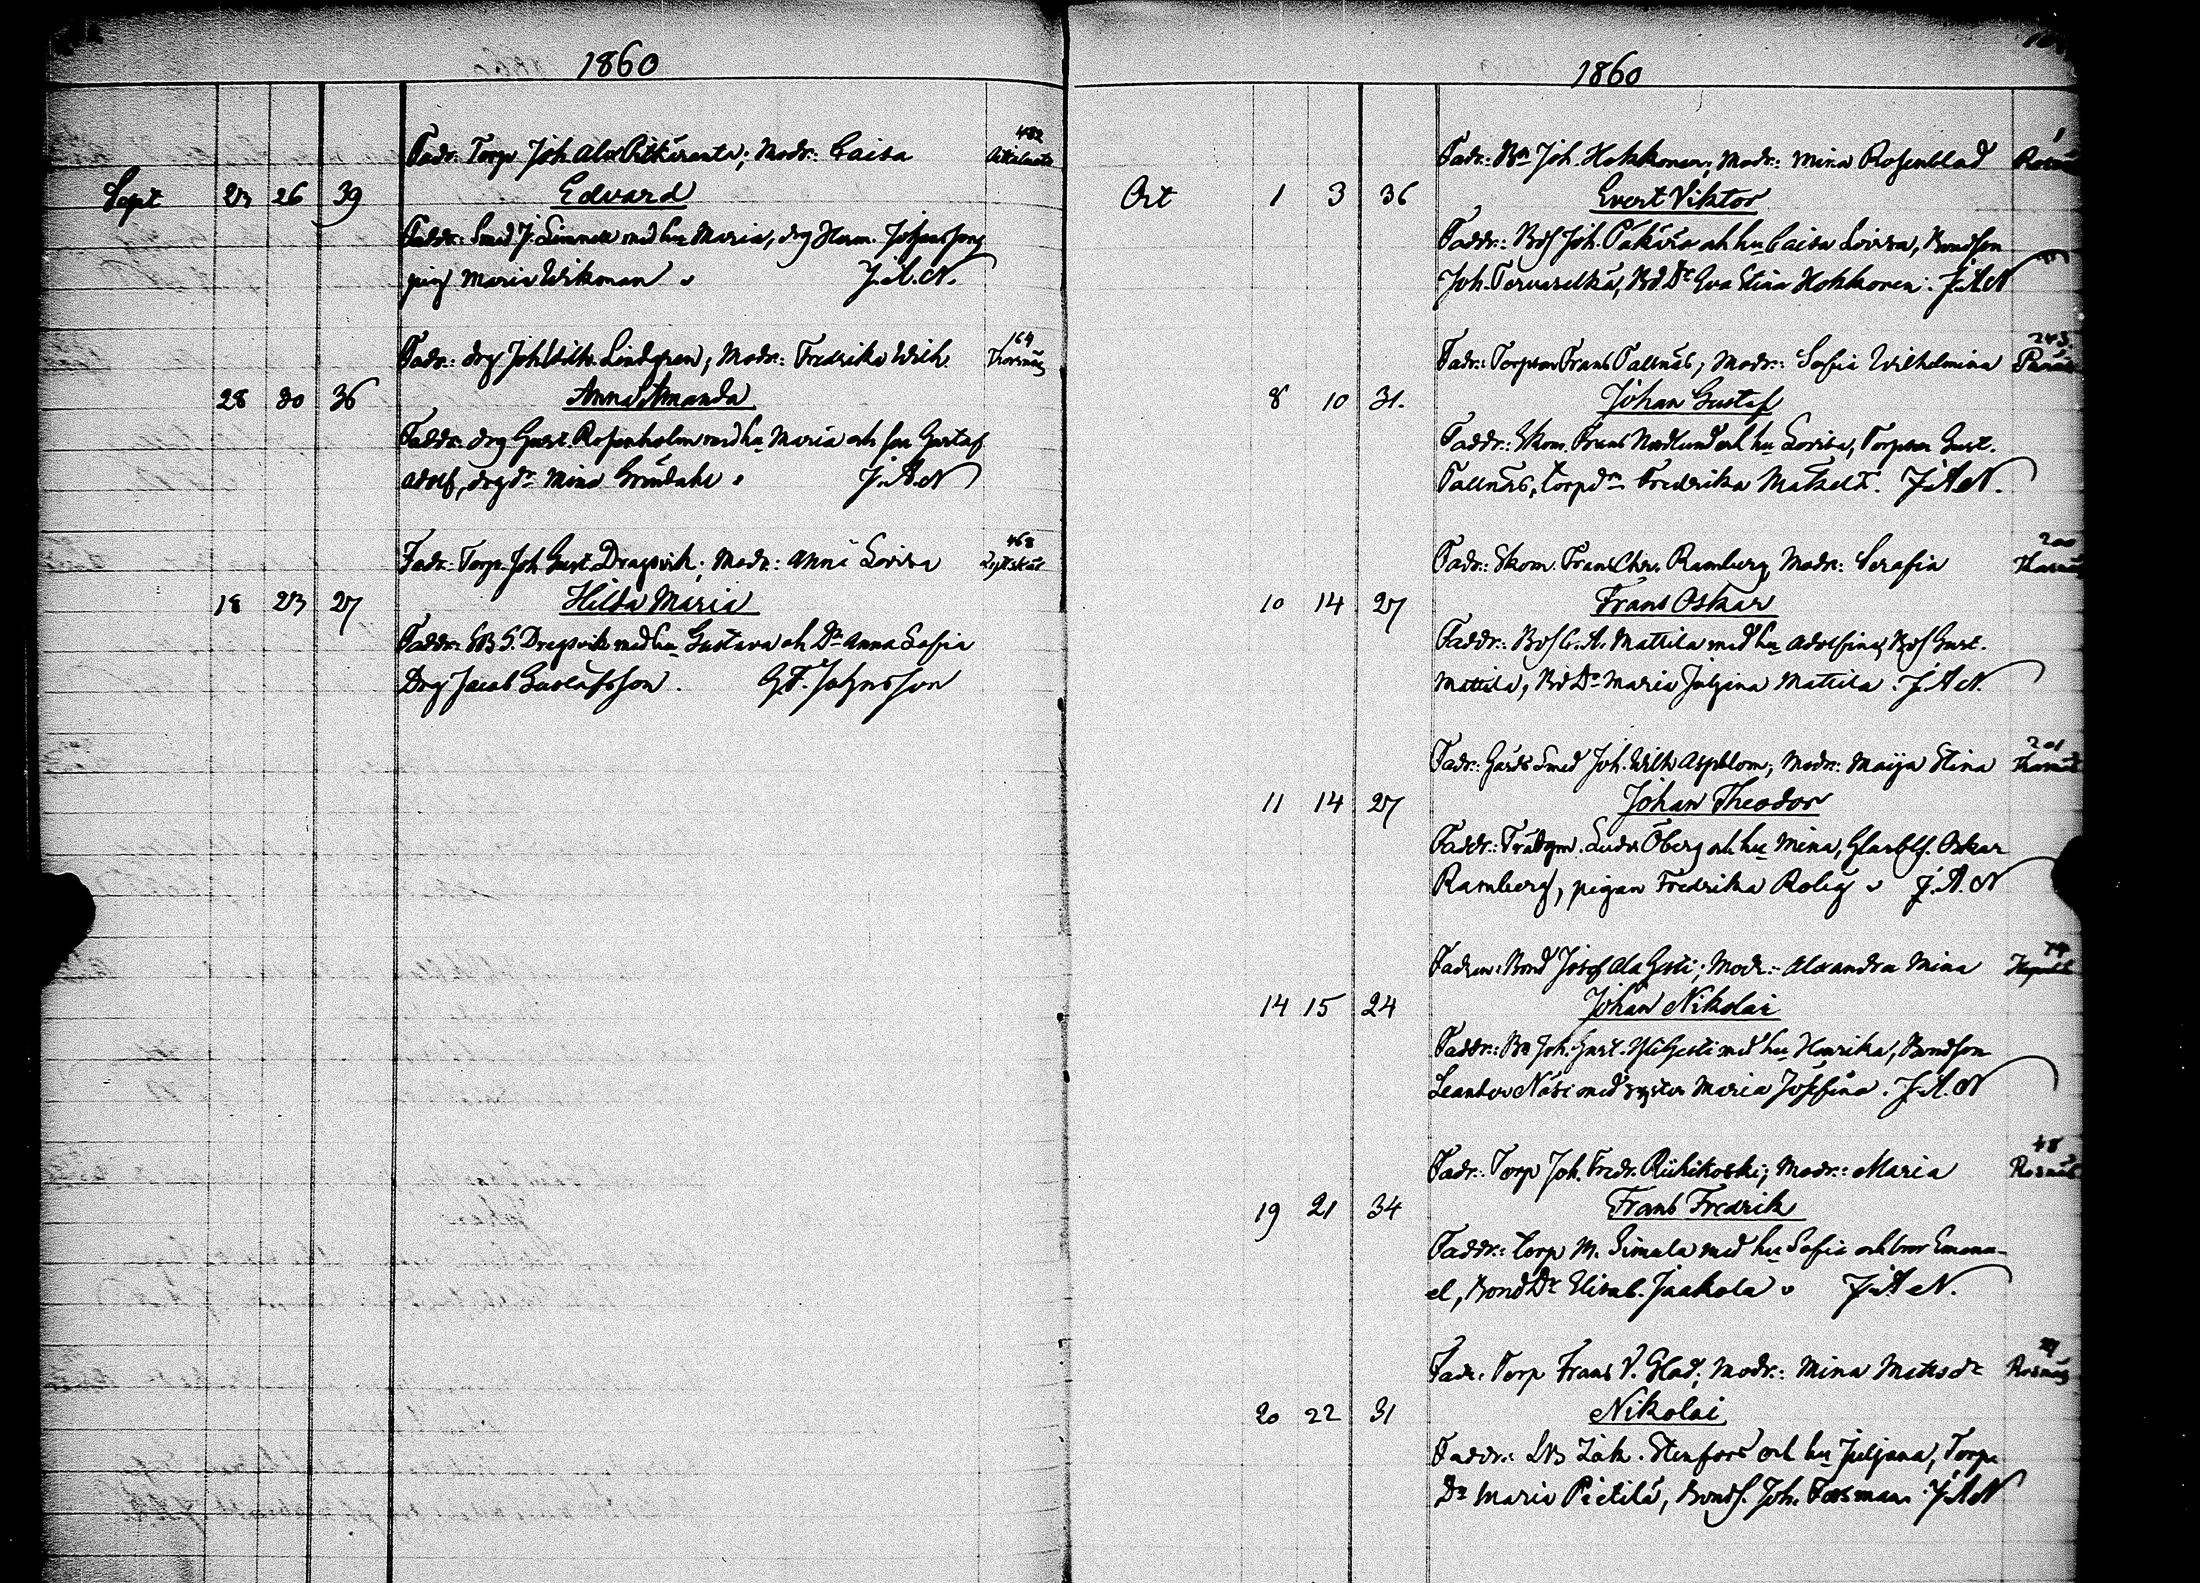 1860
Fadr: Torp Joh. Alex Pitkäranta; Modr: Caisa 482
Sept 23 26 39 Edvard
Faddr: Smed J. Limnell med hu Maria, drg Herm. Johansson,
pig Maria Wikman J.A.N.
Fadr: drg Joh Wilh. Lindgren; Modr: Fredrika Wilh. 164
28 30 36 Anna Amanda
Faddr: drg Gust. Rosenholm med hu Maria och son Gustaf
Adolf, drgdr Mina Gröndahl J.A.N
Fadr: Torp. Joh Gust Dragsvik; Modr: Anna Lovisa 468
18 23 27 Hilda Maria
Faddr: G. Dragsvik med hu Gustava och Dr Anna Sofia
Drg Jacob Gustafsson. G.F. Johnsson
1860
Fadr: Bn Joh. Hokkonen; Modr: Mina Rosenblad 1
Oct 1 3 36 Evert Viktor
Faddr: Joh. och hu Caisa Lovisa, Bondson
Joh. Tervaselkä, Bd Dr Eva Stina Hokkonen. J.A.N
Fadr: Torpson Frans Tallnäs; Modr: Sofia Wilhelmina 243
8 10 31. Johan Gustaf
Faddr: Skom. Frans Nordlund och hu Lovisa, Torpson Gust.
Tallnäs, torpdr Fredrika J.A.N.
Fadr: Skom. Frans Chr. Ramberg, Modr: Serafia 200
10 14 27 Frans Oskar
Faddr: A. Mattila med hu Adolfina, Gust.
Mattila, Bd Dr Maria Mattila. J.A.N.
Fadr: Gårds Smed Joh. Wilh Aspblom; Modr: Maija Stina 201
11 14 27 Johan Theodor
Faddr: Trädgm. Ludv Öberg och hu Mina, Oskar
Ramberg, pigan Fredrika Rolig J.A.N
Fadren: Bond Josef Ala Gesti; Modr: Alexandra Mina 74
14 15 24 Johan Nikolai
Faddr: Bn Joh. Gust. Yli Gesti med hu Henrika, Bondson
Leander Näsi med syster Maria Josefina. J.A.N
Fadr: Torp Joh. Fredr. Riihikoski; Modr: Maria 48 Rosnäs
19 21 34 Frans Fredrik
Faddr: torp M. Simula med hu Sofia och bror Emanu-
el, Bond Dr Elisab. Jaakola J.A.N.
Fadr: Torp Frans V. Glad; Modr: Mina Matsdr Rosnäs
20 22 31 Nikolai
Faddr: Zak. Stenfors och hu Juljana, Torp
Dr Maria Pietilä, Bonds. Joh. Forsman J.A.N